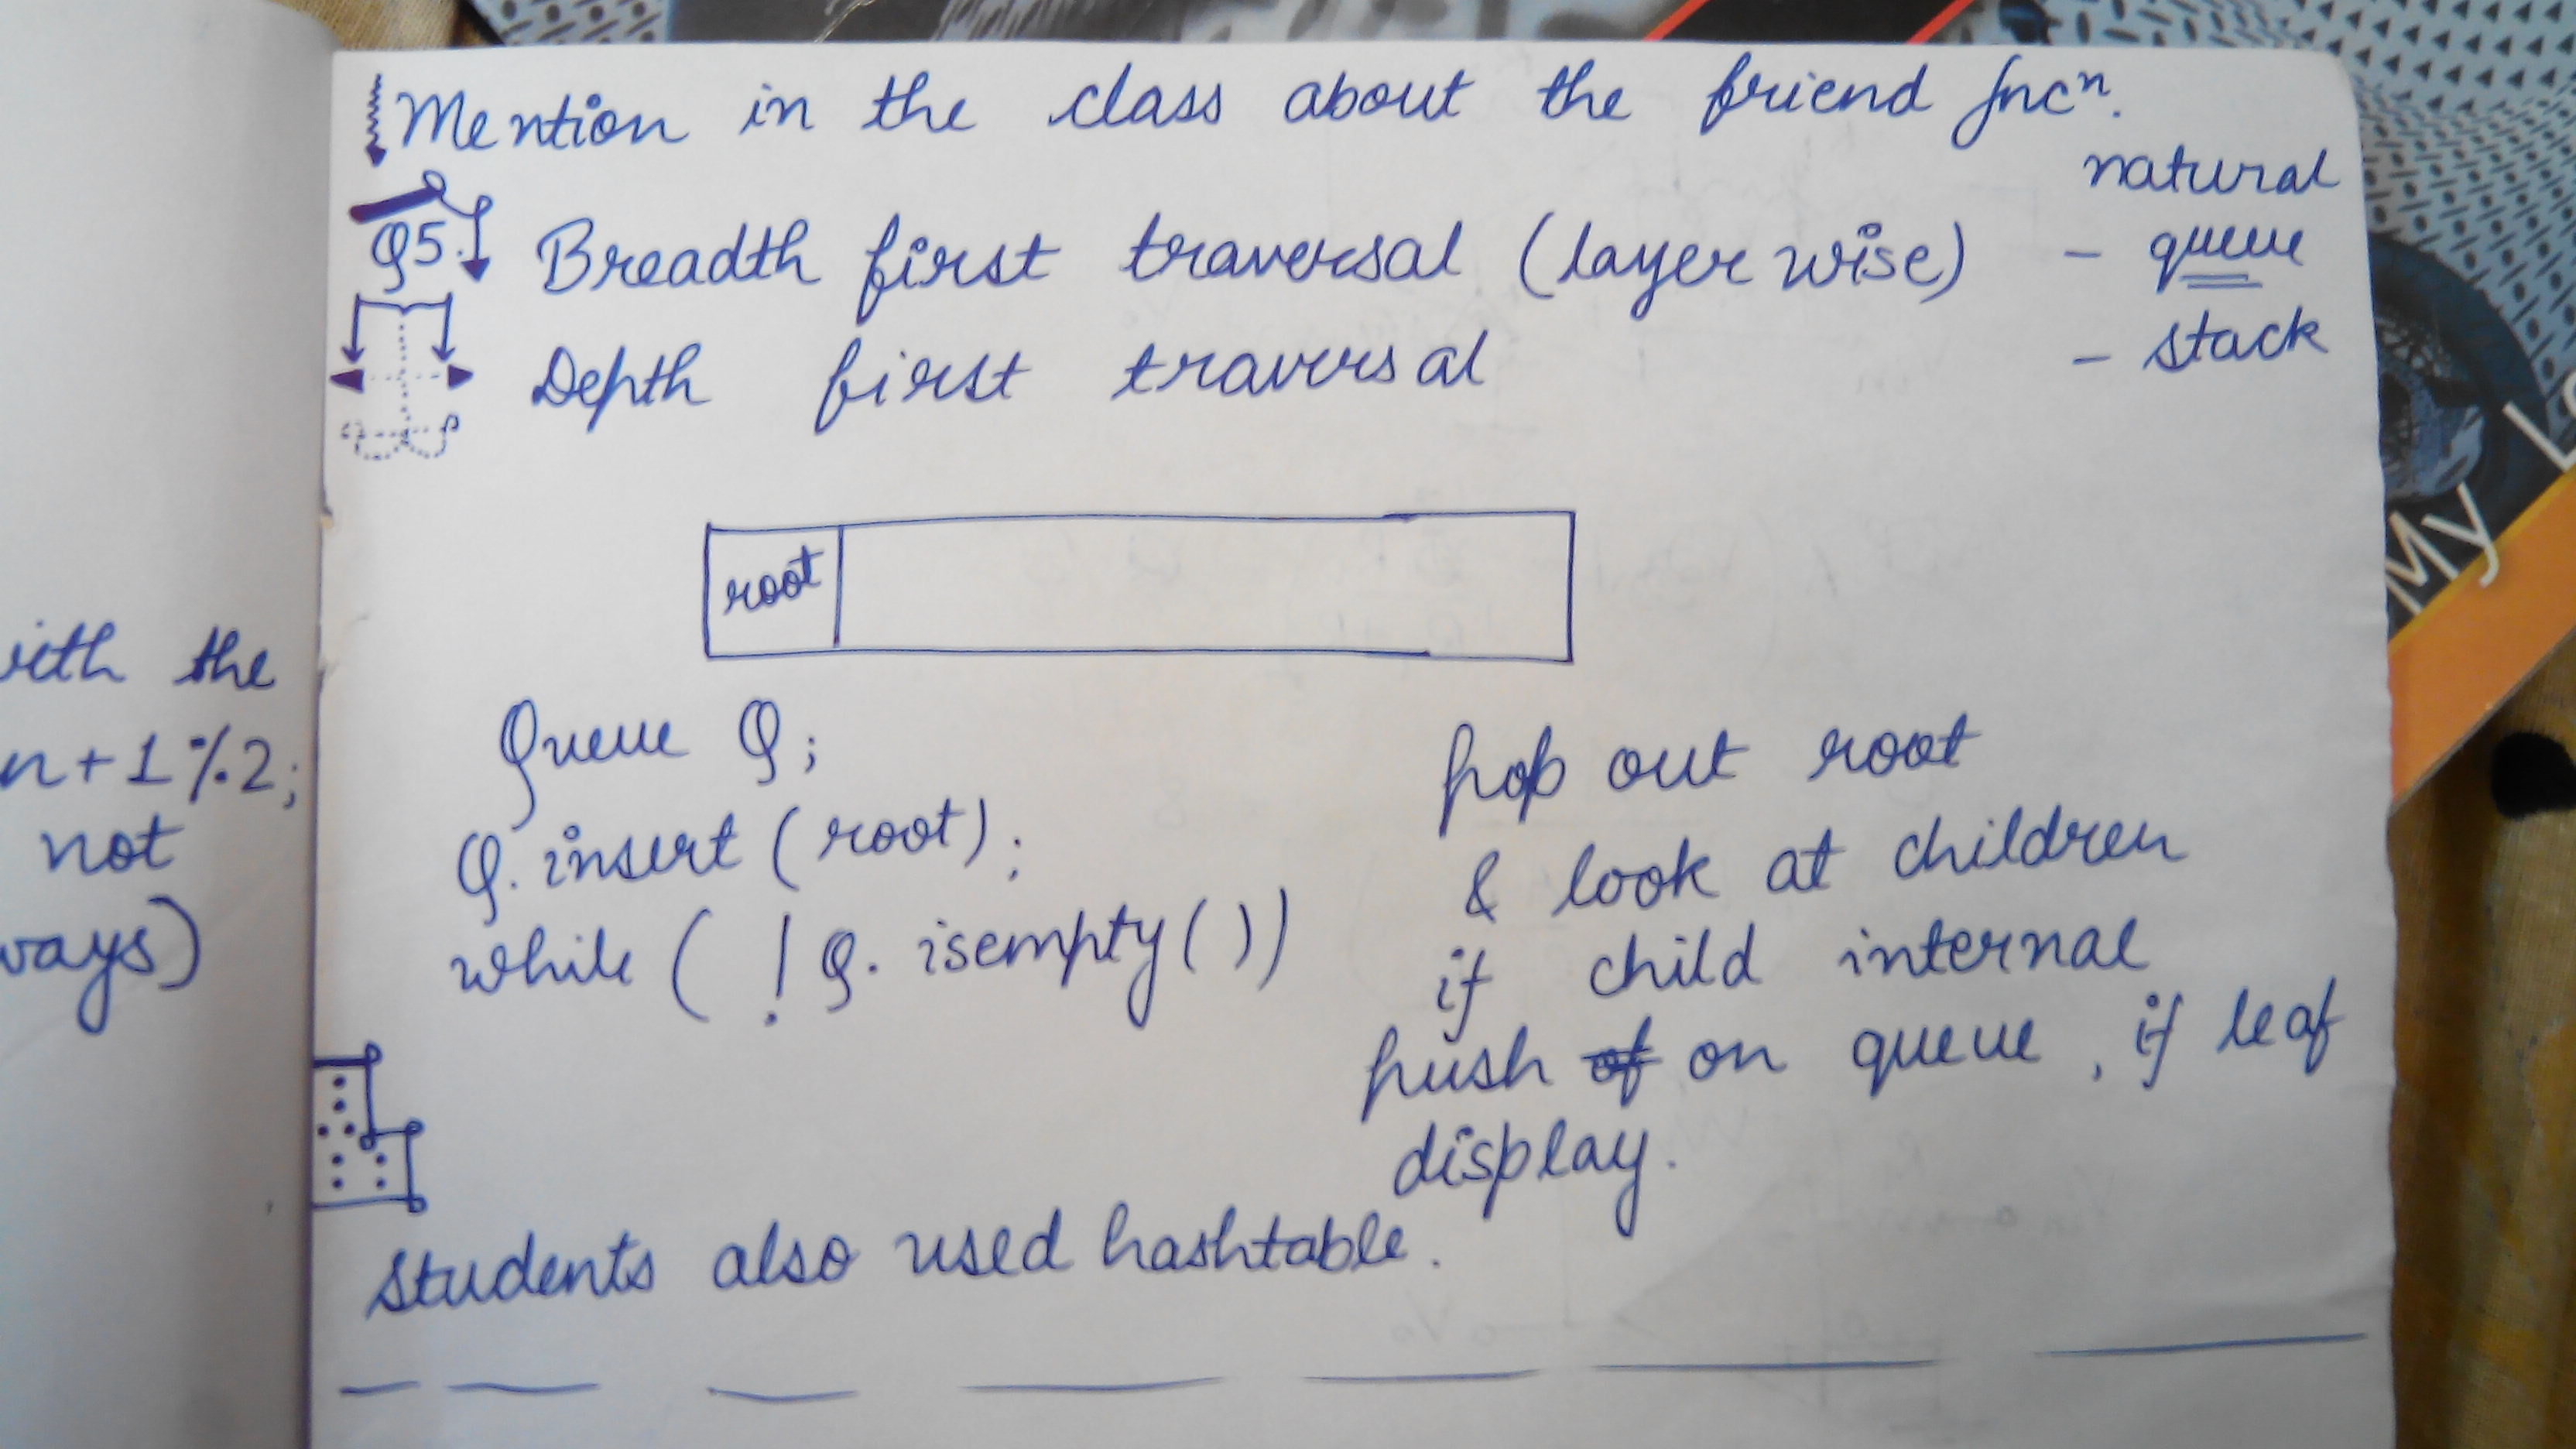 Mention in the class about the friend fncⁿ.
natural
Q5. Breadth first traversal (layer wise) - queue
Depth first traversal - stack
root
Queue Q;
Q.insert (root);
while ( ! Q. isempty())
pop out root
& look at children
if child internal
push of on queue, if leaf
display.
students also used hashtable.
with the
n+1%2;
not
ways)
My L